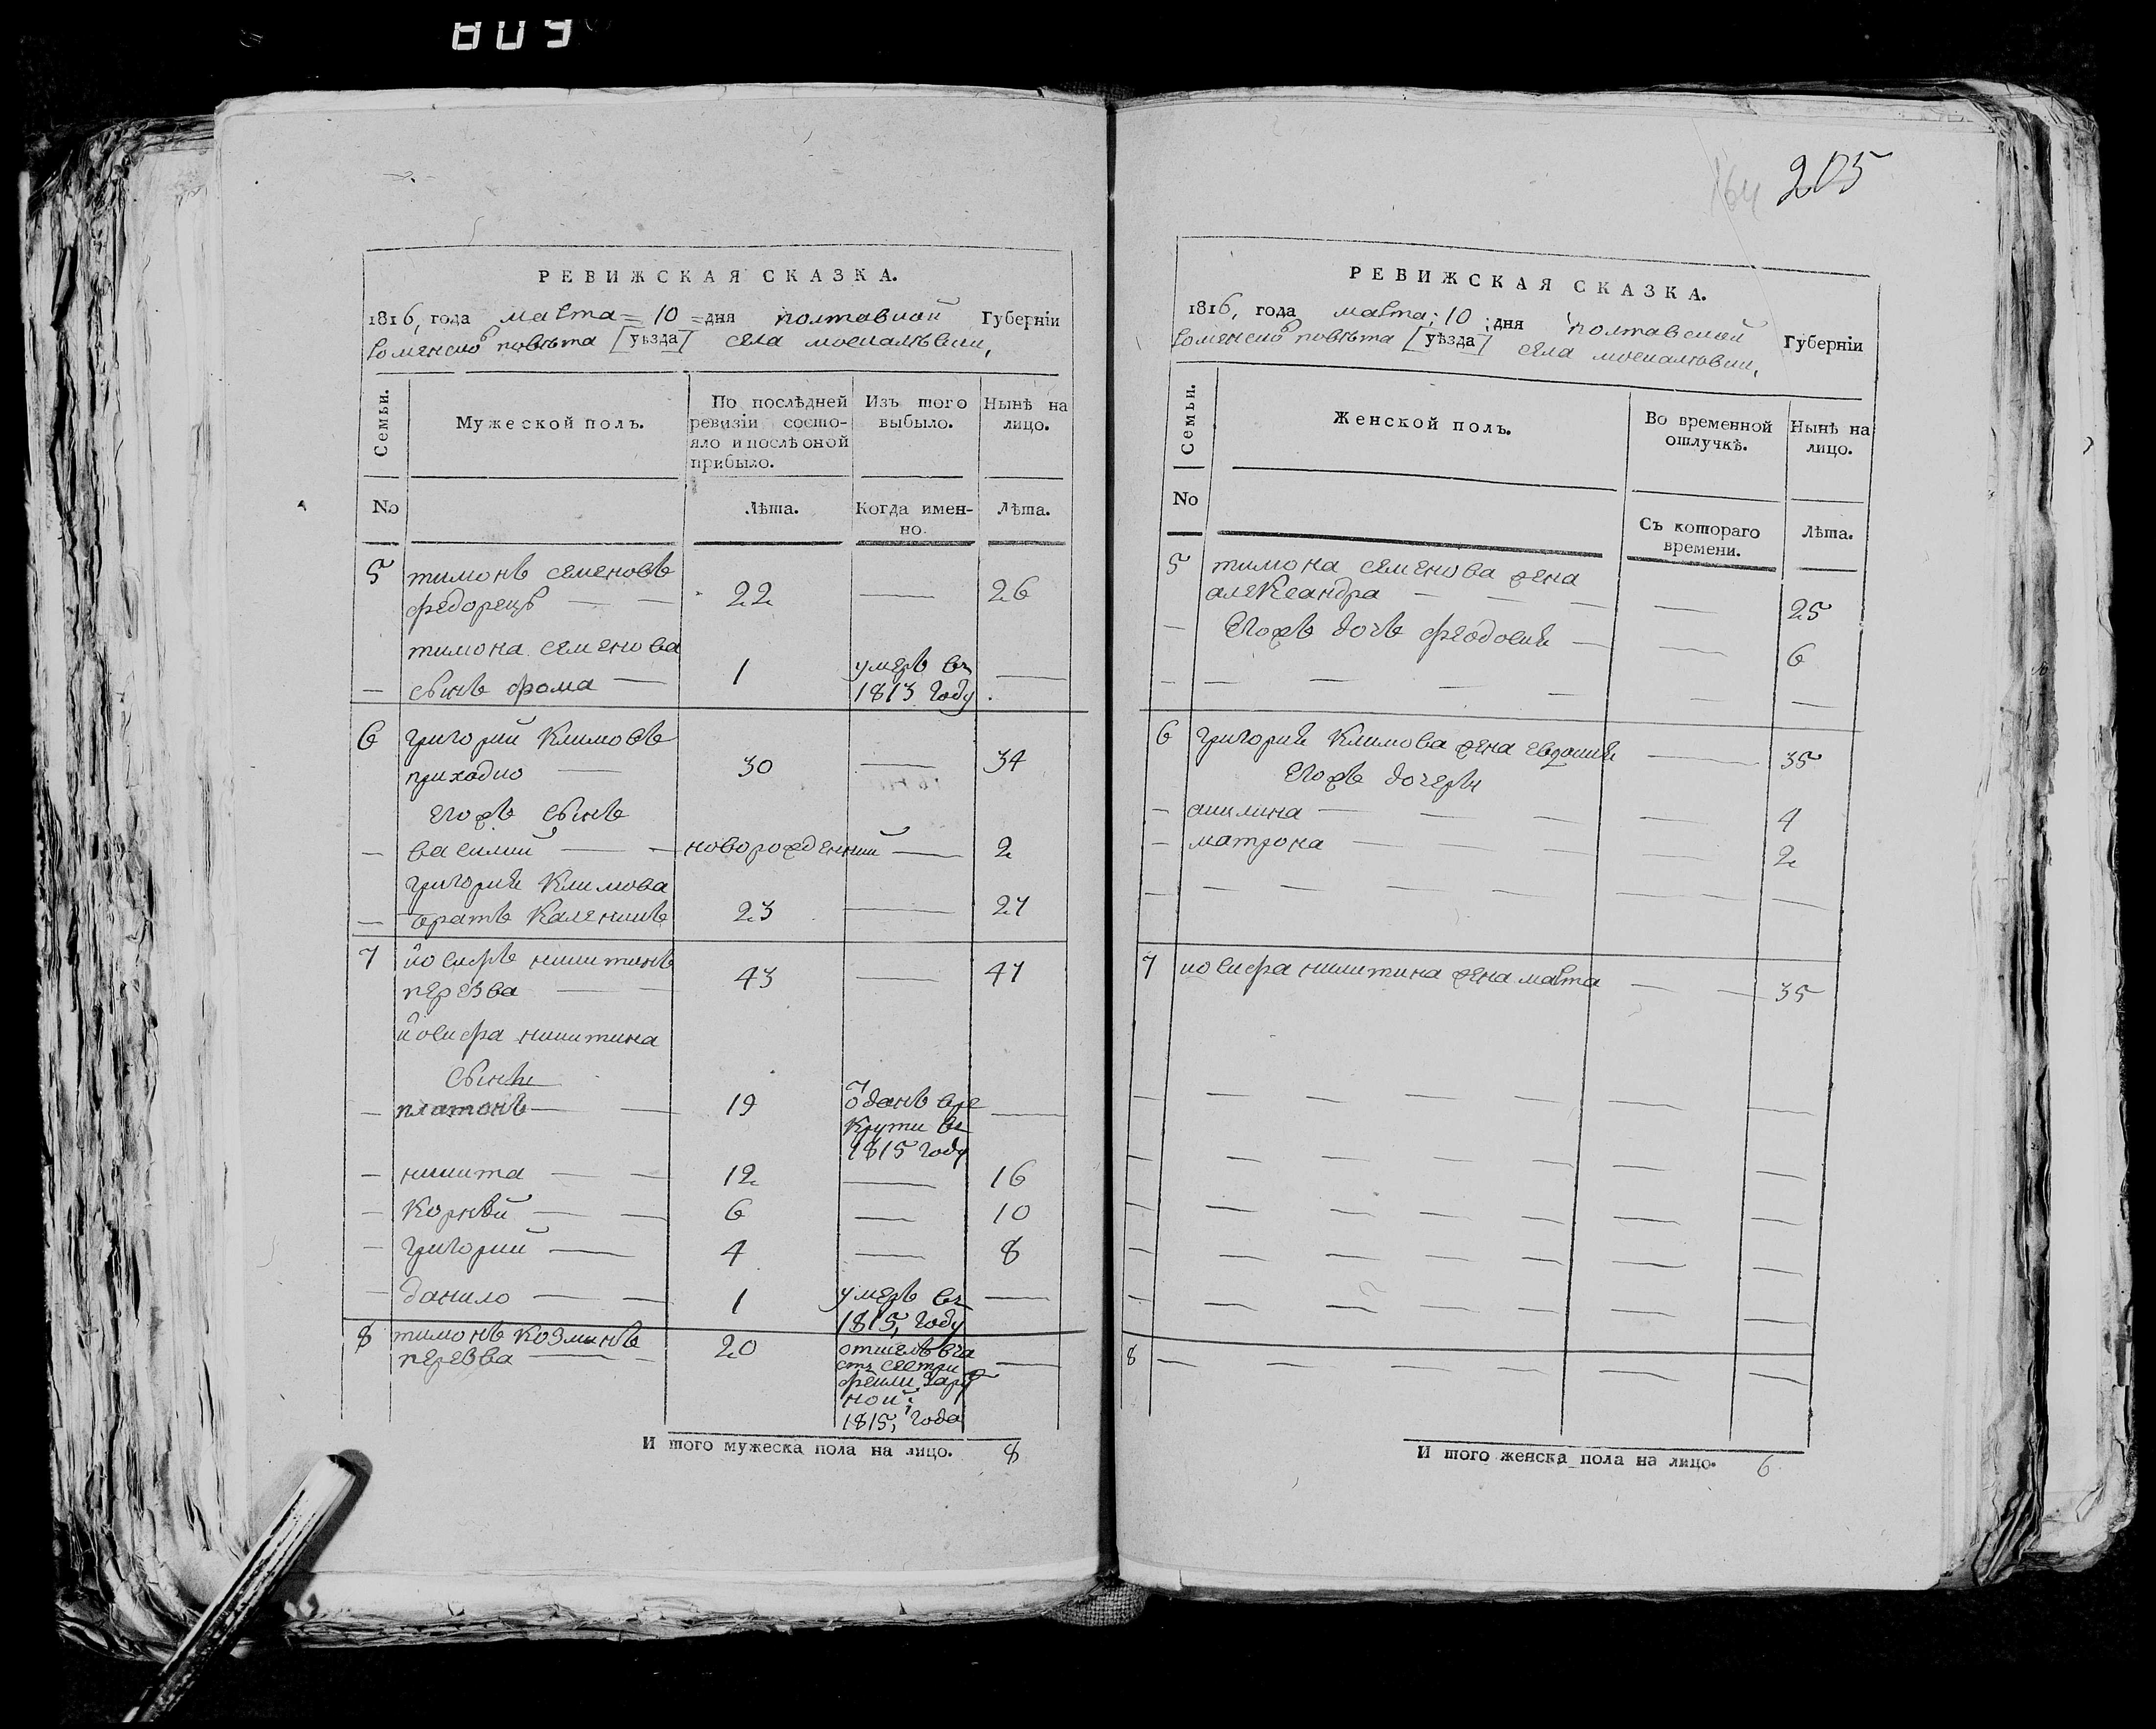 809
205
164
РЕВИЖСКАЯ СКАЗКА.
1816, года марта = 10 = дня полтавской Губернїи
роменского повѣта [уѣзда] села москалювки,
Семьи.
Мужеской полъ.
По послѣдней ревизїи состояло и послѣ оной прибыло.
Изъ того выбыло.
Нынѣ на лицо.
No
Лѣта.
Когда именно.
Лѣта.
5 тимонъ семеновъ
федорецъ — — 22 — 26
тимона семенова
— сынъ фома — 1 умеръ въ 1813 году —
6 григорий климовъ
приходко — 30 — 34
егожъ сынъ
— василий — — новорожденний — 2
григория климова
— братъ каленикъ 23 — 27
7 иосифъ никитинъ
перезва — — 43 — 47
иосифа никитина
сыни
— платонъ — — 19 одданъ вре крути въ 1815 году —
— никита — — 12 — 16
— корнѣй — — 6 — 10
— григорий — 4 — 8
— данило — — 1 умеръ въ 1815, году —
8 тимонъ козминъ
перезва — — 20 отшелъ
1815, года —
И того мужеска пола на лицо. 8
РЕВИЖСКАЯ СКАЗКА.
1816, года марта; 10; дня полтавской Губернїи
роменского повѣта [уѣзда] села москалювки,
Семьи.
Женской полъ.
Во временной отлучкѣ.
Нынѣ на лицо.
No
Съ котораго времени.
Лѣта.
5 тимона семенова жена
александра — — — — 25
— егожъ дочь феодосия — — 6
— — — — — — —
6 григория климова жена евдокия — 35
егожъ дочери
— акилина — — — — 4
— матрона — — — — 2
— — — — — — — —
7 иосифа никитина жена марта — — 35
— — — — — — — —
— — — — — — — —
— — — — — — — —
— — — — — — — —
— — — — — — — —
8 — — — — — — —
И того женска пола на лицо. 6